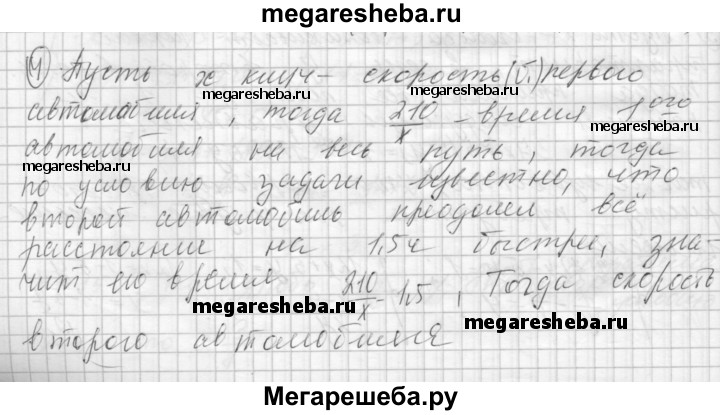 megaresheba.ru
4) Пусть x км/ч - скорость (V₁) первого
megaresheba.ru
megaresheba.ru
автомобиля, тогда 210/x - время 1ого
megaresheba.ru
автомобиля на весь путь, тогда
megaresheba.ru
по условию задачи известно, что
второй автомобиль преодолел всё
расстояние на 1,5ч быстрей, зна-
чит его время 210/x - 1,5, Тогда скорость
megaresheba.ru
megaresheba.ru
второго автомобиля
Мегарешеба.ру